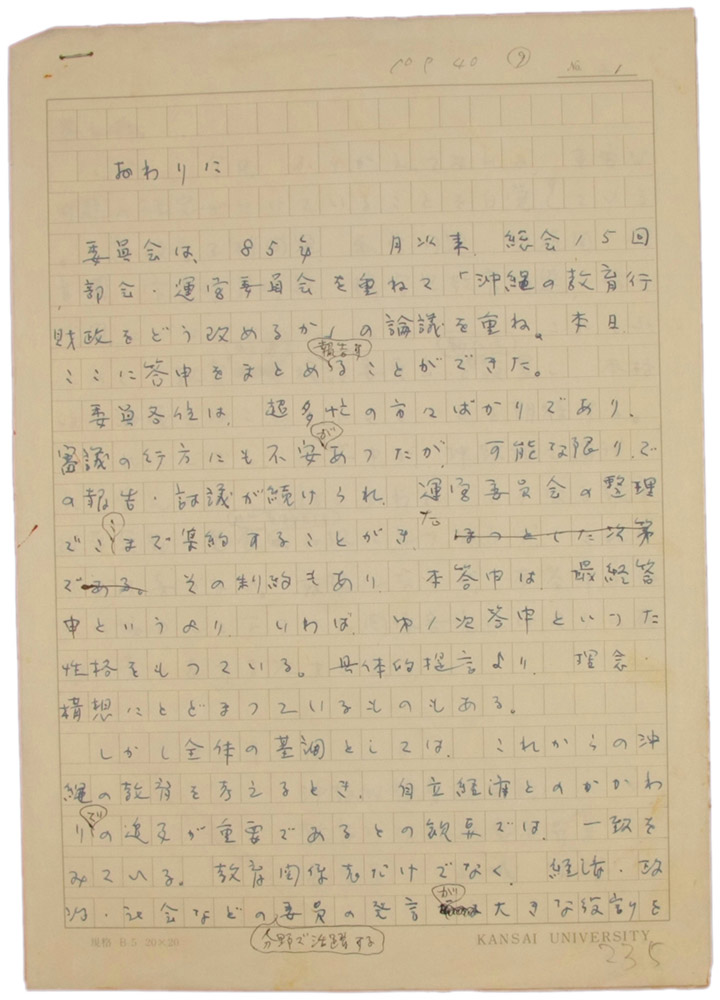 No. 1
おわりに
委員会は、85年　　月以来、総会15回
部会・運営委員会を重ねて「沖縄の教育行
財政をどう改めるか」の論議を重ね、本日
報告す
ここに答申をまとめることができた。
委員各位は、超多忙の方々ばかりであり、
が
審議の行方にも不安あったが、可能な限りで
の報告・討議が続けられ、運営委員会の整理
こ　た
でこまで集約することがき　ほっとした次第
である。その制約もあり、本答申は、最終答
申というより、いわば、第1次答申といった
性格をもっている。具体的提言より、理念・
構想にとどまっているものもある。
しかし全体の基調としては、これからの沖
縄の教育を考えるとき、自立経済とのかかわ
りの追及が重要であるとの観点では、一致を
みている。教育関係者だけでなく、経済・政
がり
治・社会などの委員の発言　大きな役割りを
分野で活躍する
規格 B.5 20×20
KANSAI UNIVERSITY
235